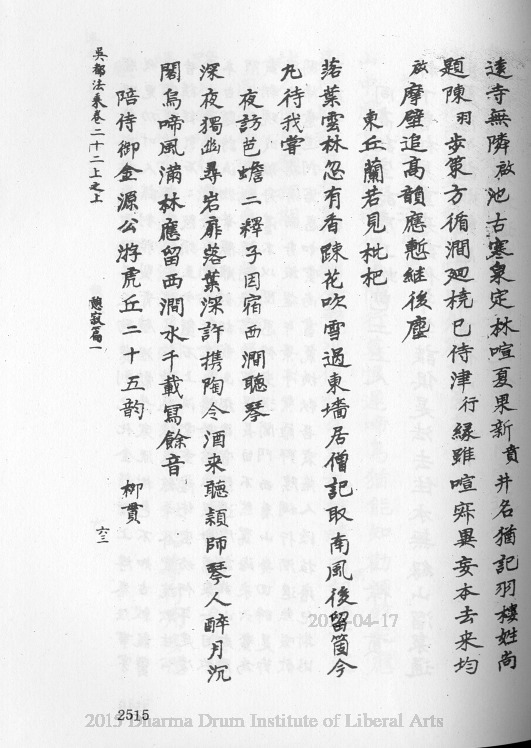 遠寺無隣啟池古寒泉定林喧夏果新賁井名猶記羽樓姓尚
題陳羽步策方循澗廻橈已侍津行緣雖喧寂異妄本去来均
啟摩壁追高韻應慙継後塵
東丘蘭若見枇杷
落葉雲林忽有香踈花吹雪過東墻居僧記取南風後留箇今
九待我嘗
夜訪芭蟾二釋子因宿西澗聽琴
深夜獨幽尋岩扉落葉深許携陶令酒来聽頴師琴人醉月沉
閣烏啼風滿林應留西澗水千載寫餘音
陪侍御金源公游虎丘二十五韵 柳貫
吳都法乘卷二十二上之上 憩寂篇一 六三
2515
2017-04-17
2015 Dharma Drum Institute of Liberal Arts